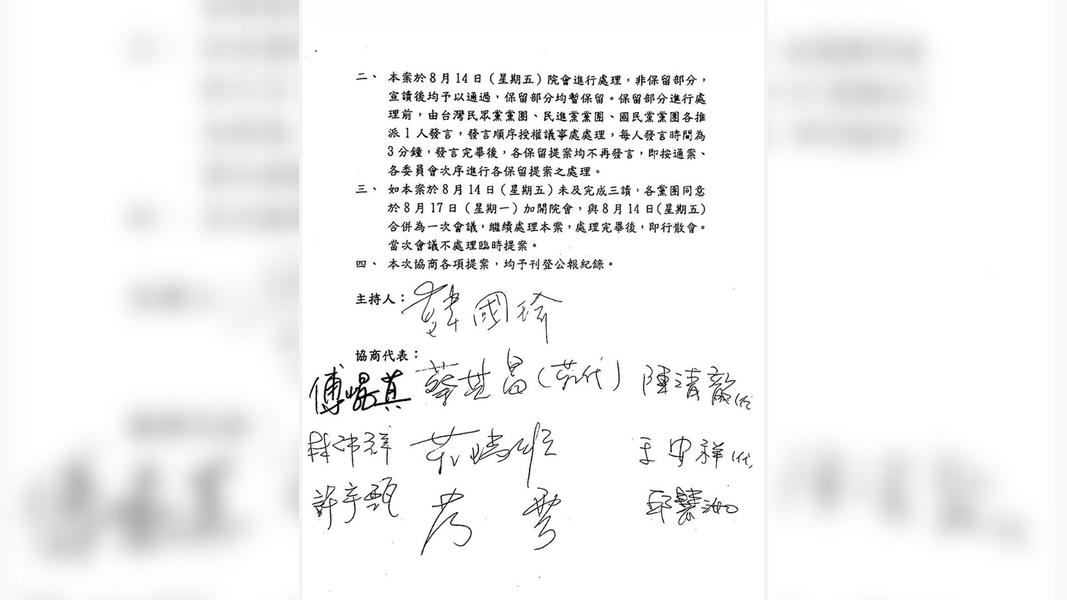 二、本案於8月14日（星期五）院會進行處理，非保留部分，
宣讀後均予以通過，保留部分均暫保留。保留部分進行處
理前，由台灣民眾黨黨團、民進黨黨團、國民黨黨團各推
派1人發言，發言順序授權議事處處理，每人發言時間為
3分鐘，發言完畢後，各保留提案均不再發言，即按通案、
各委員會次序進行各保留提案之處理。
三、如本案於8月14日（星期五）未及完成三讀，各黨團同意
於8月17日（星期一）加開院會，與8月14日(星期五)
合併為一次會議，繼續處理本案，處理完畢後，即行散會。
當次會議不處理臨時提案。
四、本次協商各項提案，均予刊登公報紀錄。
主持人：韓國瑜
協商代表：
傅崐萁 蔡其昌 陳清龍代
林沛祥 王安祥代
許宇甄 邱慧洳